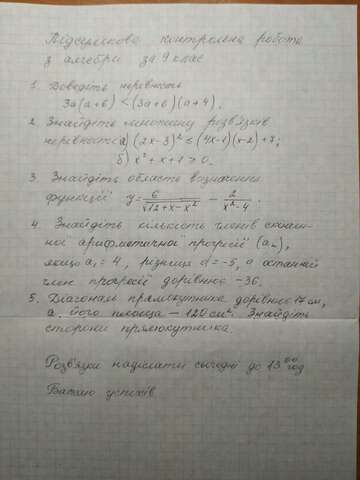 Підсумкова контрольна робота
з алгебри за 9 клас
1. Доведіть нерівність
3a(a+6) < (3a+6)(a+4).
2. Знайдіть множину розв'язків
нерівності: а) (2x-3)² ≤ (4x-1)(x-2)+7;
б) x²+x+1>0.
3. Знайдіть область визначення
функції y = 6/√(12+x-x²) - 2/(x²-4).
4. Знайдіть кількість членів скінчен-
ної арифметичної прогресії (aₙ),
якщо a₁=4, різниця d=-5, а останній
член прогресії дорівнює -36.
5. Діагональ прямокутника дорівнює 17 см,
а його площа — 120 см². Знайдіть
сторони прямокутника.
Розв'язки надіслати сьогодні до 13⁰⁰ год
Бажаю успіхів